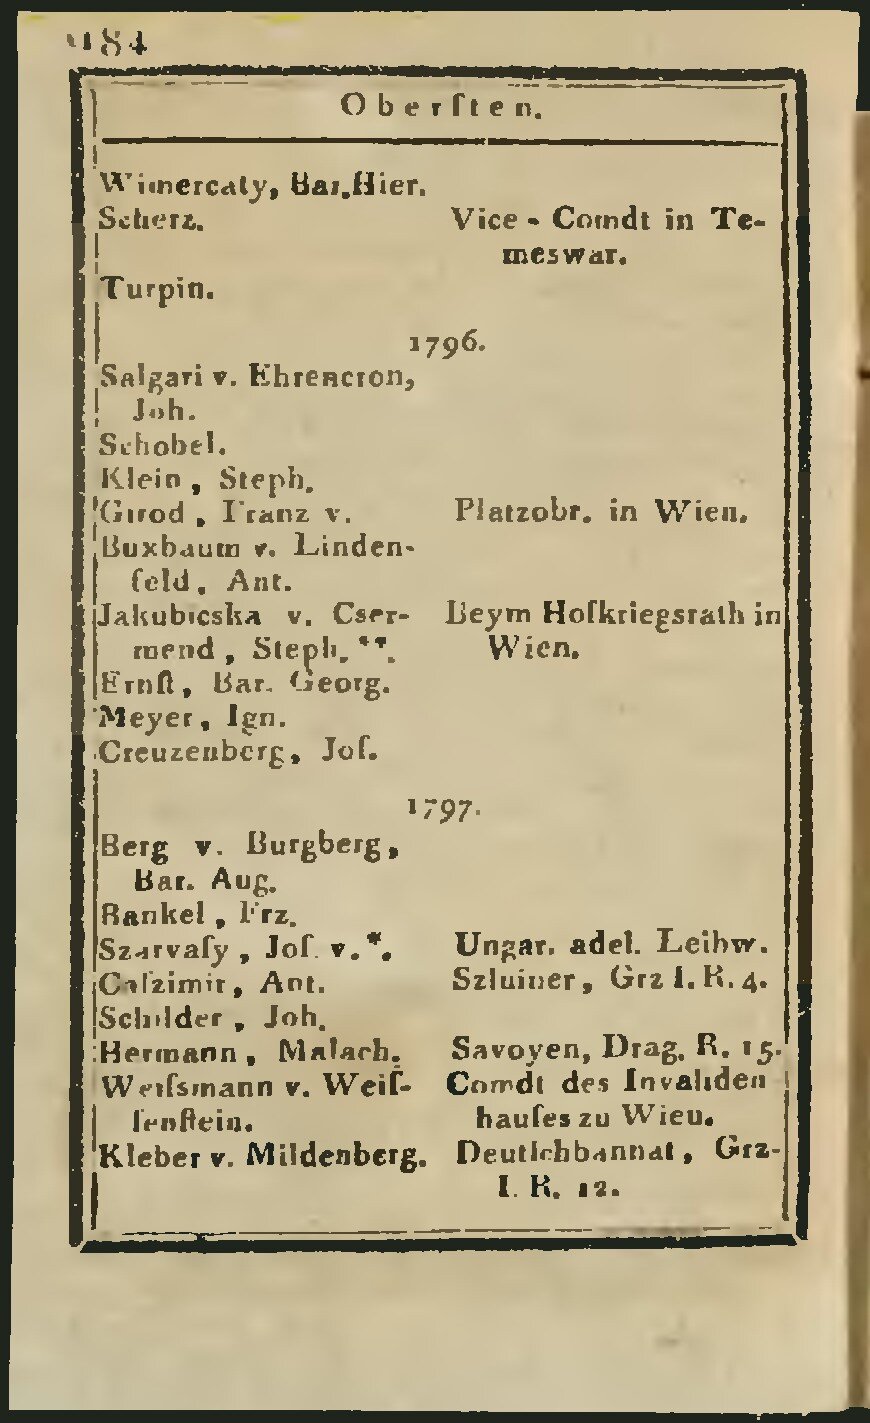 184
Oberſten.
Wimercaty, Bar. Hier.
Scherz. Vice - Comdt in Te-
meswar.
Turpin.
1796.
Salgari v. Ehrencron,
Joh.
Schobel.
Klein, Steph.
Girod, Franz v. Platzobr. in Wien.
Buxbaum v. Linden-
feld, Ant.
Jakubicska v. Cser- Beym Hofkriegsrath in
mend, Steph. **. Wien.
Ernſt, Bar. Georg.
Meyer, Ign.
Creuzenberg, Joſ.
1797.
Berg v. Burgberg,
Bar. Aug.
Rankel, Frz.
Szarvaſy, Joſ. v. *. Ungar. adel. Leibw.
Caſzimir, Ant. Szluiner, Grz I. R. 4.
Schilder, Joh.
Hermann, Malach. Savoyen, Drag. R. 15.
Weiſsmann v. Weiſ- Comdt des Invaliden
ſenſtein. hauſes zu Wien.
Kleber v. Mildenberg. Deutſchbannat, Grz-
I. R. 12.